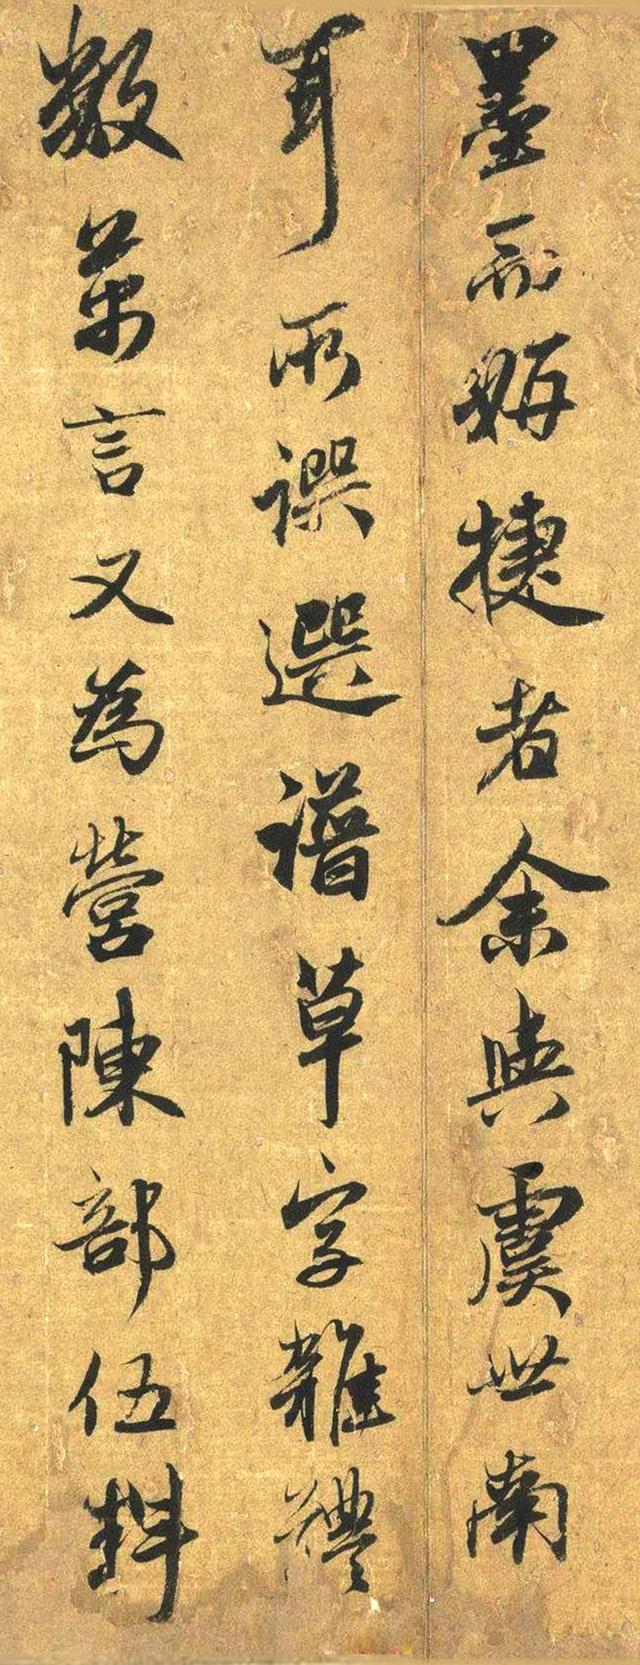 墨而妍捷者余與虞世南
耳所譔選譜草字雜體
數萬言又為營陳部伍料